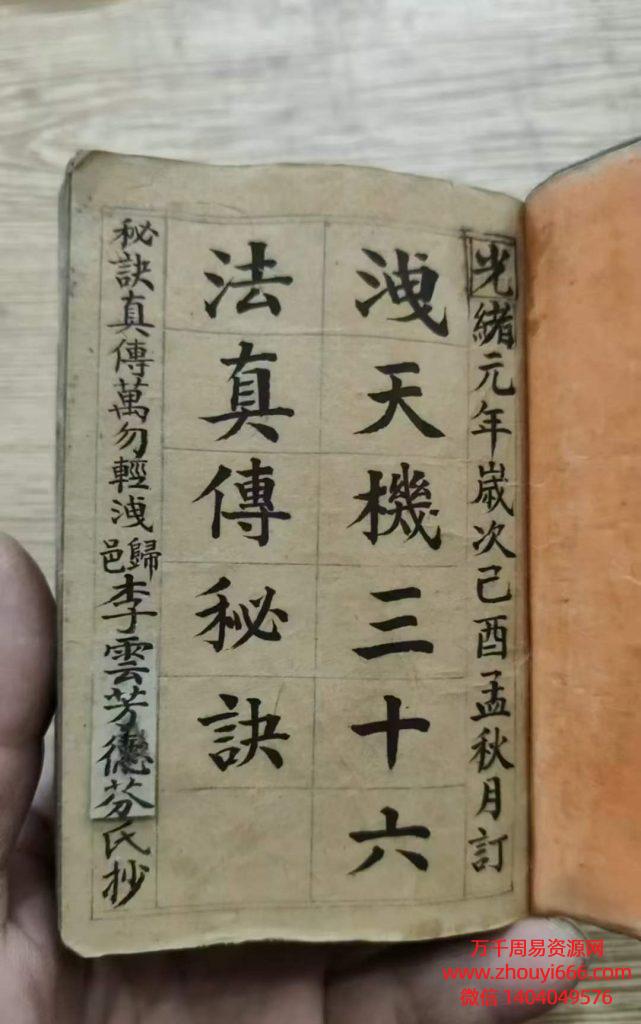 光緒元年歲次己酉孟秋月訂
洩天機三十六
法真傳秘訣
秘訣真傳萬勿輕洩歸邑李雲芳德芬氏抄
万千周易资源网
www.zhouyi666.com
微信1404049576